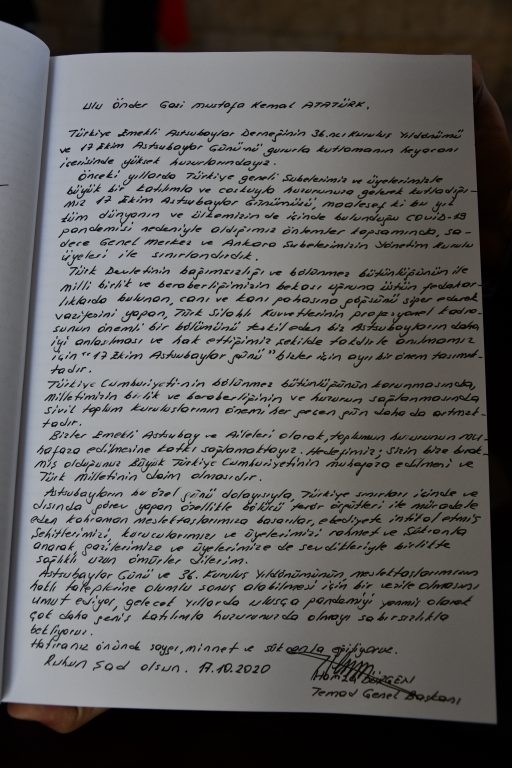 Ulu Önder Gazi Mustafa Kemal ATATÜRK.
Türkiye Emekli Astsubaylar Derneğinin 36.ncı Kuruluş Yıldönümü
ve 17 Ekim Astsubaylar Günü'nü gururla kutlamanın heyecanı
içerisinde yüksek huzurlarındayız.
Önceki yıllarda Türkiye geneli Şubelerimiz ve üyelerimizle
büyük bir katılımla ve coşkuyla huzurunuza gelerek kutladığı-
mız 17 Ekim Astsubaylar Günümüzü, maalesef ki bu yıl
tüm dünyanın ve ülkemizin de içinde bulunduğu COVID-19
pandemisi nedeniyle aldığımız önlemler kapsamında, sa-
dece Genel Merkez ve Ankara Şubelerimizin Yönetim Kurulu
üyeleri ile sınırlandırdık.
Türk Devletinin bağımsızlığı ve bölünmez bütünlüğünün ile
milli birlik ve beraberliğimizin bekası uğruna üstün fedakar-
lıklarda bulunan, canı ve kanı pahasına göğsünü siper ederek
vazifesini yapan, Türk Silahlı Kuvvetlerinin profesyonel kadro-
sunun önemli bir bölümünü teşkil eden biz Astsubayların daha
iyi anlaşılması ve hak ettiğimiz şekilde takdirle anılmamız
için "17 Ekim Astsubaylar günü" bizler için ayrı bir önem taşımak-
tadır.
Türkiye Cumhuriyeti'nin bölünmez bütünlüğünün korunmasında,
Milletimizin birlik ve beraberliğinin ve huzurun sağlanmasında
Sivil toplum kuruluşlarının önemi her geçen gün daha da artmak-
tadır.
Bizler Emekli Astsubay ve Aileleri olarak, toplumun huzurunun mu-
hafaza edilmesine katkı sağlamaktayız. Hedefimiz; Sizin bize bırak-
mış olduğunuz Büyük Türkiye Cumhuriyeti'nin muhafaza edilmesi ve
Türk Milletinin daim olmasıdır.
Astsubayların bu özel günü dolayısıyla, Türkiye sınırları içinde ve
dışında görev yapan özellikle bölücü terör örgütleri ile mücadele
eden kahraman meslektaşlarımıza başarılar, ebediyete intikal etmiş
Şehitlerimizi, kurucularımızı ve üyelerimizi rahmet ve şükranla
anarak gazilerimize ve üyelerimize de sevdikleriyle birlikte
sağlıklı uzun ömürler dilerim.
Astsubaylar Günü ve 36. Kuruluş Yıldönümünün, meslektaşlarımızın
haklı taleplerine olumlu sonuç alabilmesi için bir vesile olmasını
umut ediyor, gelecek yıllarda ulusça pandemiyi yenmiş olarak
çok daha geniş katılımla huzurunuzda olmayı sabırsızlıkla
bekliyoruz.
Hatıranız önünde saygı, minnet ve şükranla eğiliyoruz.
Ruhun Şad olsun. 17.10.2020
Hamza DÜRGEN
Temad Genel Başkanı